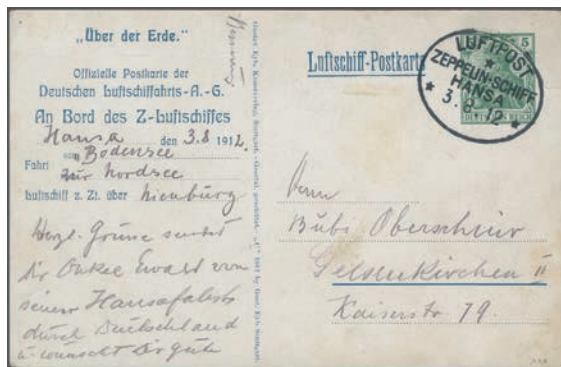 „Über der Erde."
Offizielle Postkarte der
Deutschen Luftschiffahrts-A.-G.
An Bord des Z-Luftschiffes
Hansa den 3.8 1912.
Fahrt vom Bodensee
zur Nordsee
Luftschiff z. Zt. über Nienburg
Herzl. Grüsse sendet
Dir Onkel Ewald von
seiner Hansafahrt
durch Deutschland
u. wünscht Dir gute
Luftschiff-Postkarte
5
DEUTSCHES REICH
LUFTPOST
ZEPPELIN-SCHIFF
HANSA
3.8.12
Herrn
Bubi
Gelsenkirchen II
Kaiserstr 79.